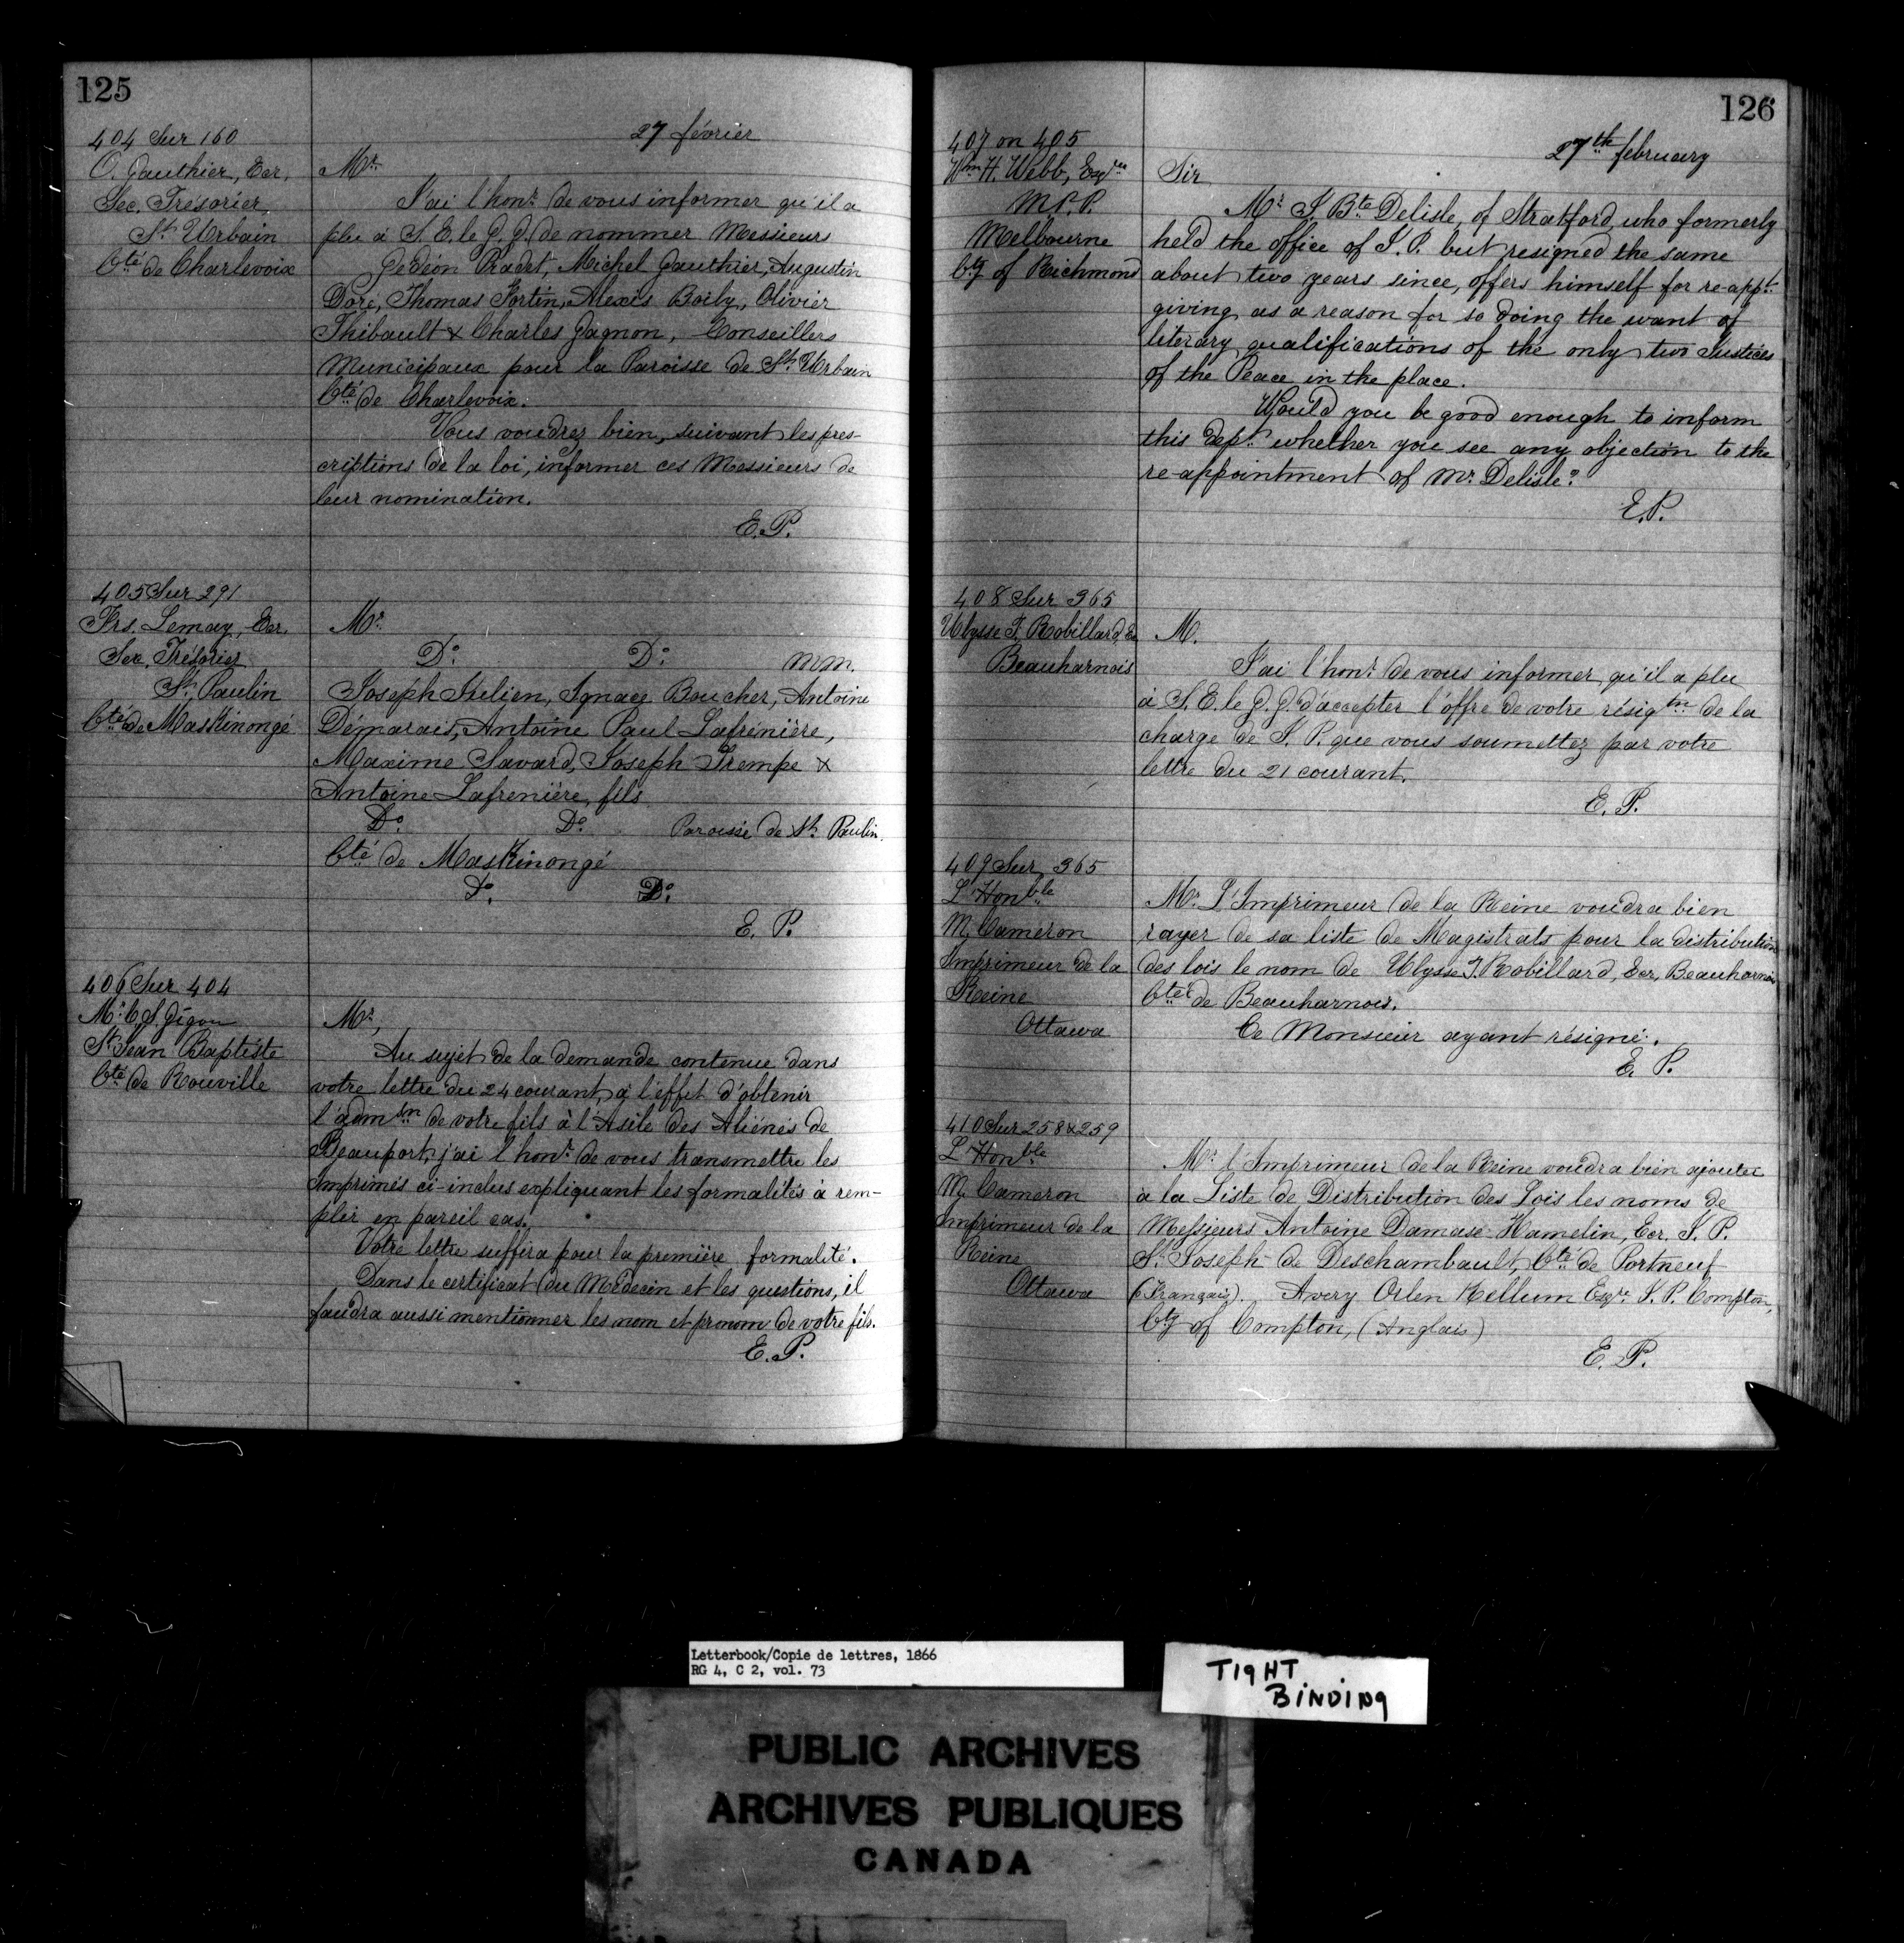 125
27 février
404 Sur 160
O. Gauthier, Ecr.
Sec. Trésorier
St Urbain
Cté de Charlevoix
Mr.
J'ai l'honr. de vous informer qu'il a
plu à S. E. le G. G. de nommer Messieurs
Gedéon Pradet, Michel Gauthier, Augustin
Doré, Thomas Fortin, Alexis Boily, Olivier
Thibault & Charles Gagnon, Conseillers
Municipaux pour la Paroisse de St. Urbain
Cté de Charlevoix.
Vous voudrez bien, suivant les pres-
criptions de la loi, informer ces Messieurs de
leur nomination.
E. P.
405 Sur 291
Frs. Lemay, Ecr.
Sec. Trésorier
St. Paulin
Cté de Maskinongé
Mr.
Do. Do. MM.
Joseph Julien, Ignace Boucher, Antoine
Démarais, Antoine Paul Lafrénière,
Maxime Savard, Joseph Trempe &
Antoine Lafrenière, fils
Do. Do. Paroisse de St. Paulin.
Cté de Maskinongé
Do. Do.
E. P.
406 Sur 404
Mr. C. S. Gigou
St Jean Baptiste
Cté de Rouville
Mr,
Au sujet de la demande contenue dans
votre lettre du 24 courant, à l'effet d'obtenir
l'admtn de votre fils à l'Asile des Aliénés de
Beauport, j'ai l'honr. de vous transmettre les
Imprimés ci-inclus expliquant les formalités à rem-
plir en pareil cas.
Votre lettre suffira pour la première formalité.
Dans le certificat du Médecin et les questions, il
faudra aussi mentionner les nom et prenom de votre fils.
E. P.
126
27th february
407 on 405
Wm H. Webb, Esqre
M.P.P.
Melbourne
Cty of Richmond
Sir
Mr J. Bte Delisle, of Stratford, who formerly
held the office of J. P. but resigned the same
about two years since, offers himself for re-appt.
giving as a reason for so doing the want of
literary qualifications of the only two Justices
of the Peace in the place.
Would you be good enough to inform
this Dept. whether you see any objection to the
re-appointment of Mr. Delisle?
E. P.
408 Sur 365
Ulysse J. Robillard, Ecr
Beauharnois
M.
J'ai l'honr. de vous informer qu'il a plu
à S. E. le G. G. d'accepter l'offre de votre résigtn de la
charge de J. P. que vous soumettez par votre
lettre du 21 courant.
E. P.
409 Sur 365
L'Honble
M. Cameron
Imprimeur de la
Reine
Ottawa
Mr. L'Imprimeur de la Reine voudra bien
rayer de sa liste de Magistrats pour la distribution
des lois le nom de Ulysse J. Robillard, Ecr, Beauharnois
Cté de Beauharnois.
Ce Monsieur ayant résigné.
E. P.
410 Sur 258 & 259
L'Honble
M. Cameron
Imprimeur de la
Reine
Ottawa
Mr. l'Imprimeur de la Reine voudra bien ajouter
à la Liste de Distribution des Lois les noms de
Messieurs Antoine Damase Hamelin, Ecr. J. P.
St. Joseph de Deschambault, Cté de Portneuf
(Français). Avery Orlen Kellum Esqre. J. P. Compton,
Cty of Compton, (Anglais)
E. P.
Letterbook/Copie de lettres, 1866
RG 4, C 2, vol. 73
TIGHT
BINDING
PUBLIC ARCHIVES
ARCHIVES PUBLIQUES
CANADA